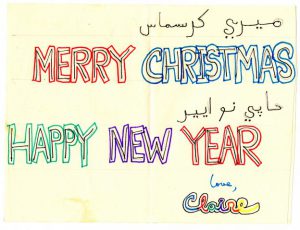 ميري كرسماس
MERRY CHRISTMAS
هاپي نو ايير
HAPPY NEW YEAR
love,
Claire